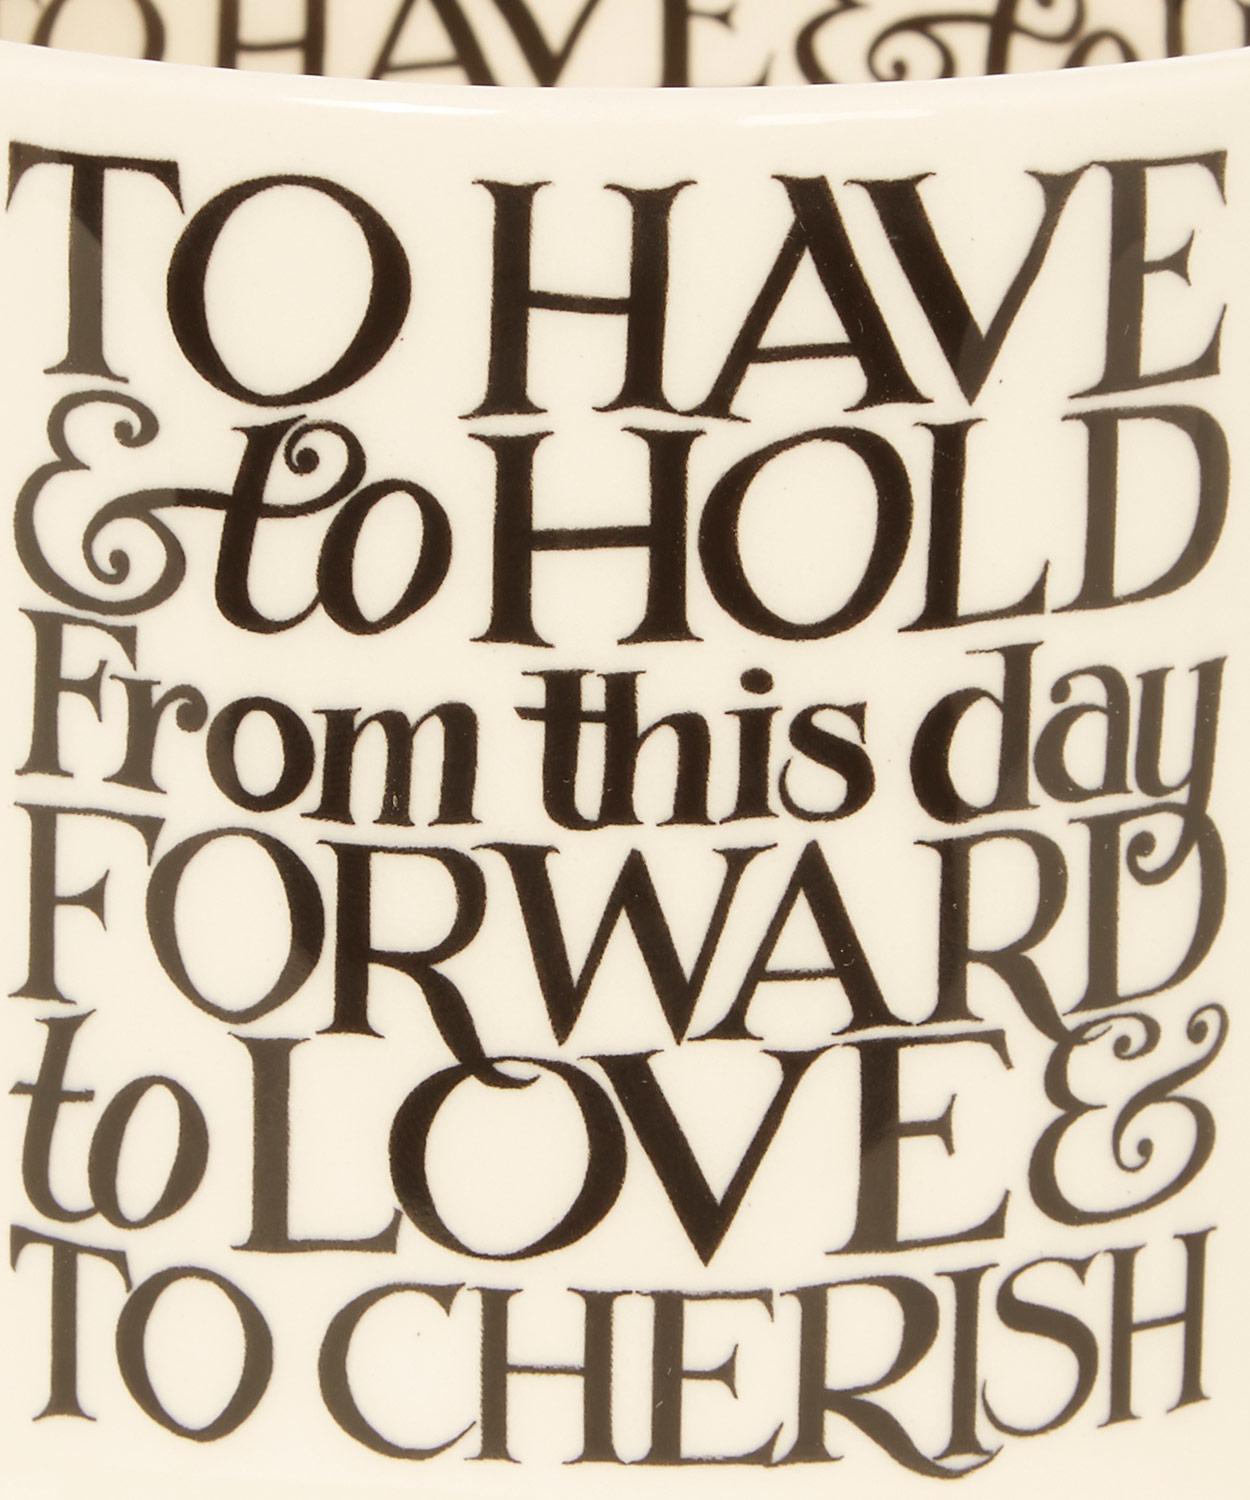 TO HAVE & to
TO HAVE
& to HOLD
From this day
FORWARD
to LOVE &
TO CHERISH